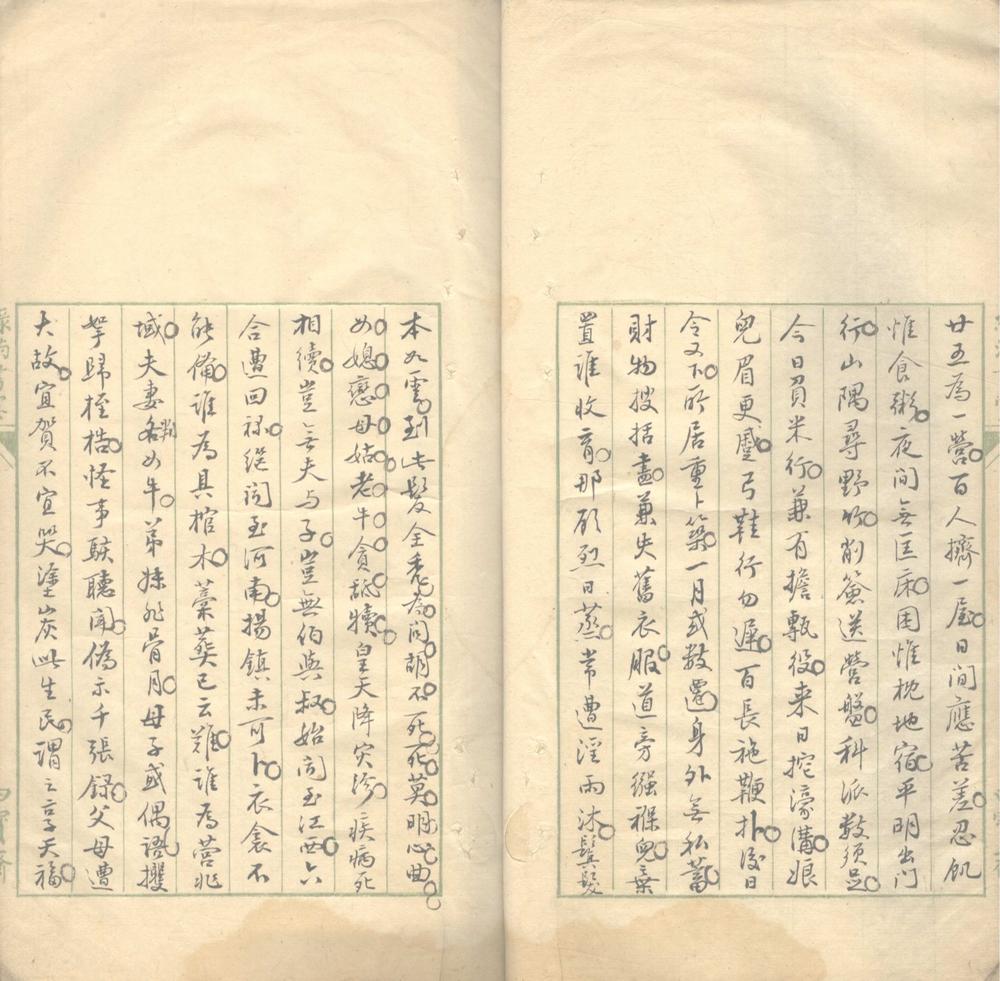 廿五為一營百人擠一屋日間應苦差忍飢
惟食粥夜間無匡床困惟枕地宿平明出門
行山隅尋野竹削簽送營盤科派數須足
今日負米行兼有擔甎役来日挖濠溝娘
兒眉更蹙弓鞋行勿遲百長施鞭扑後日
令又下所居重卜築一月或數遷身外無私蓄
財物搜括盡兼失舊衣服道旁繈褓兒棄
置誰收育那顧烈日蒸常遭淫雨沐鬢髮
本如雲到此髮全禿為問胡不死死莫明心曲
如媳戀母姑老牛貪舐犢皇天降灾沴疾病死
相續豈無夫与子豈無伯與叔始向玉江西六
合遭回祿繼聞至河南揚鎮未可卜衣衾不
能備誰為具棺木藁葬已云難誰為營兆
域夫妻各如牛弟妹非骨月母子或偶語攫
拏歸桎梏怪事駭聽聞偽示千張錄父母遭
大故宜賀不宜哭塗炭此生民謂之享天福